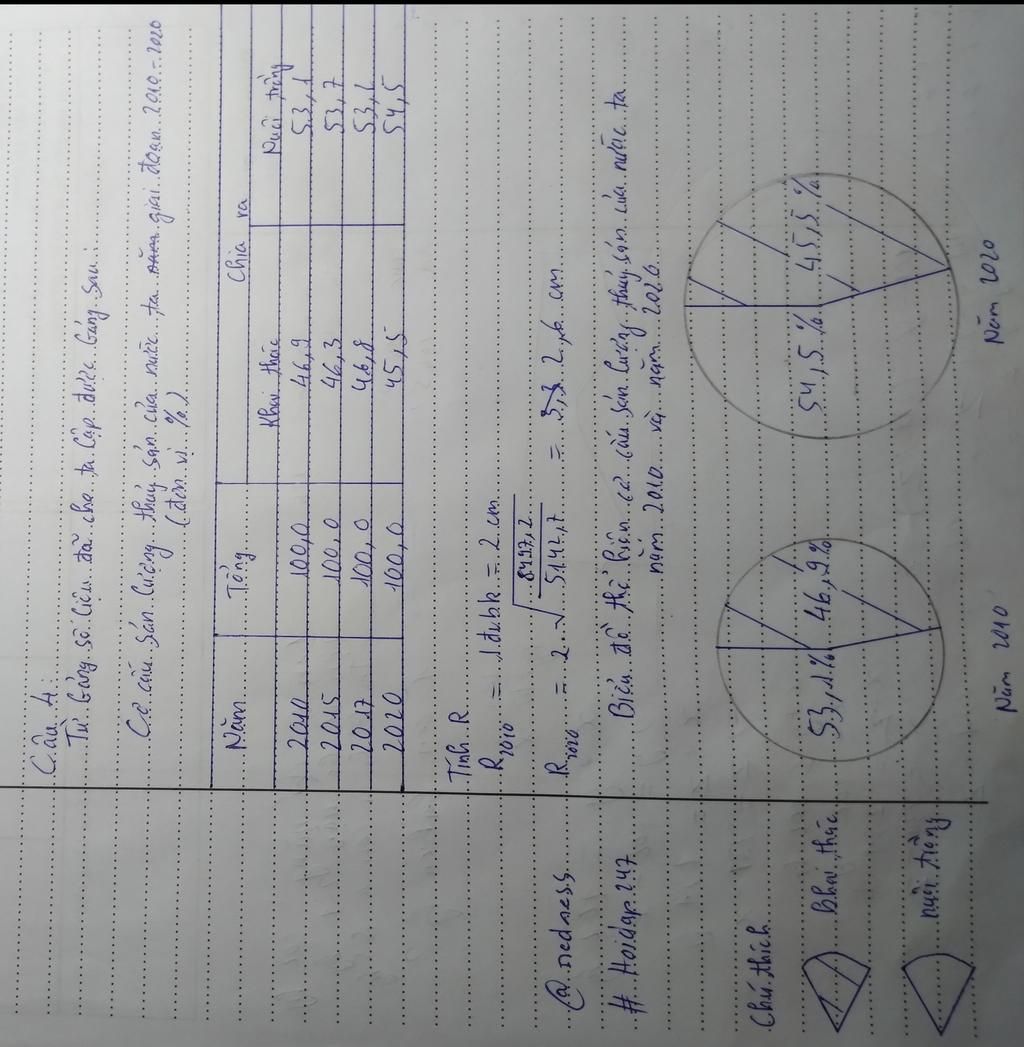 Câu 4:
Từ bảng số liệu đã cho ta lập được bảng sau:
Cơ cấu sản lượng thuỷ sản của nước ta năm giai đoạn 2010-2020
(đơn vị %)
Năm Tổng Chia ra
Khai thác Nuôi trồng
2010 100,0 46,9 53,1
2015 100,0 46,3 53,7
2017 100,0 46,8 53,2
2020 100,0 45,5 54,5
Tính R
R2010 = 1 đvbk = 2 cm
R2020 = 2. √8497,2/5142,7 = 2,6 cm
@ nedness.
# Hoidap247
Biểu đồ thể hiện cơ cấu sản lượng thuỷ sản của nước ta
năm 2010 và năm 2020
Chú thích
53,1% 46,9%
54,5% 45,5%
khai thác
nuôi trồng
Năm 2010 Năm 2020